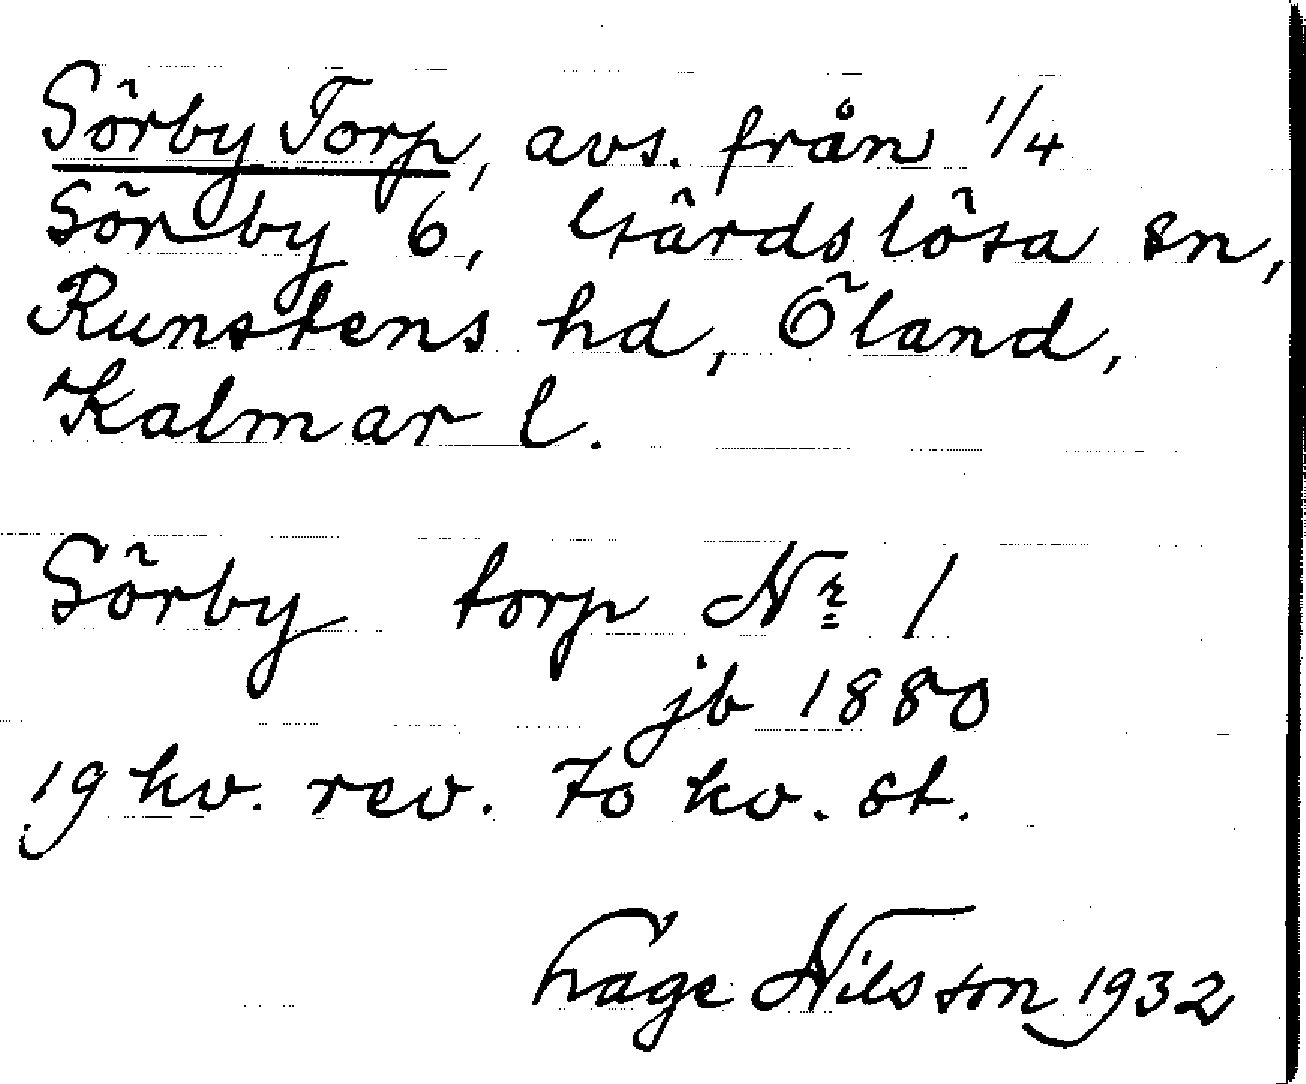 Sörby Torp, avs. från 1/4
Sörby 6, Gärdslösa sn,
Runstens hd, Öland,
Kalmar l.
Sörby torp Nr 1
jb 1880
19 kv. rev. 70 kv. st.
Hage Nilsson 1932